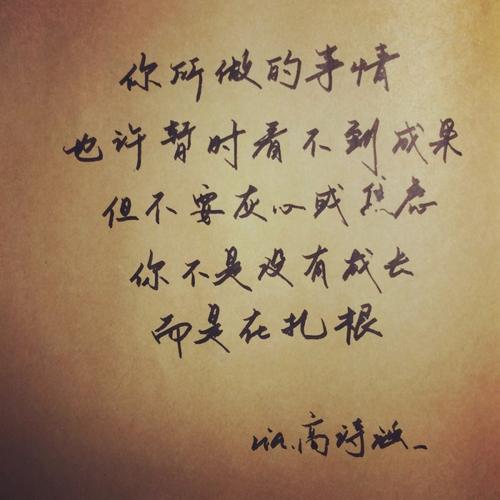 你所做的事情
也许暂时看不到成果
但不要灰心或焦虑
你不是没有成长
而是在扎根
via.高诗